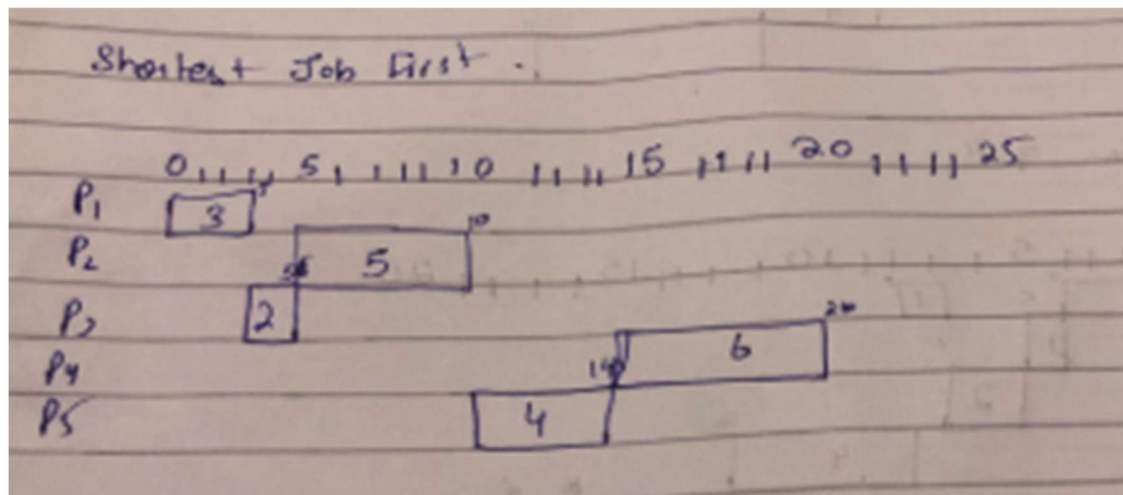 Shortest Job First.
0 5 10 15 20 25
P1 3 3
P2 5 10
P3 2 5
P4 6 20
P5 4 14